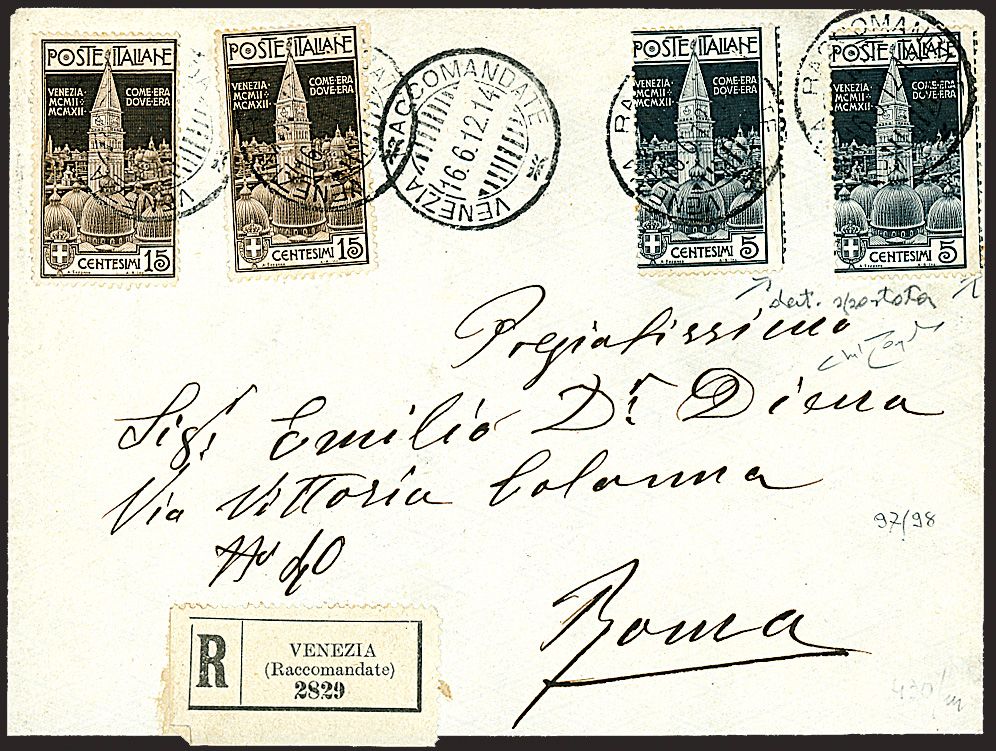 POSTE ITALIANE
VENEZIA COME·ERA
MCMII· DOVE·ERA
MCMXII·
CENTESIMI 15
POSTE ITALIANE
VENEZIA COME·ERA
MCMII· DOVE·ERA
MCMXII·
CENTESIMI 15
RACCOMANDATE
16.6.12.14
VENEZIA
POSTE ITALIANE
VENEZIA COME·ERA
MCMII· DOVE·ERA
MCMXII·
CENTESIMI 5
POSTE ITALIANE
VENEZIA COME·ERA
MCMII· DOVE·ERA
MCMXII·
CENTESIMI 5
dent. spostata
Pregiatissimo
Sigr Emilio Dr. Diena
Via Vittoria Colonna
No 40
Roma
97/98
R
VENEZIA
(Raccomandate)
2829